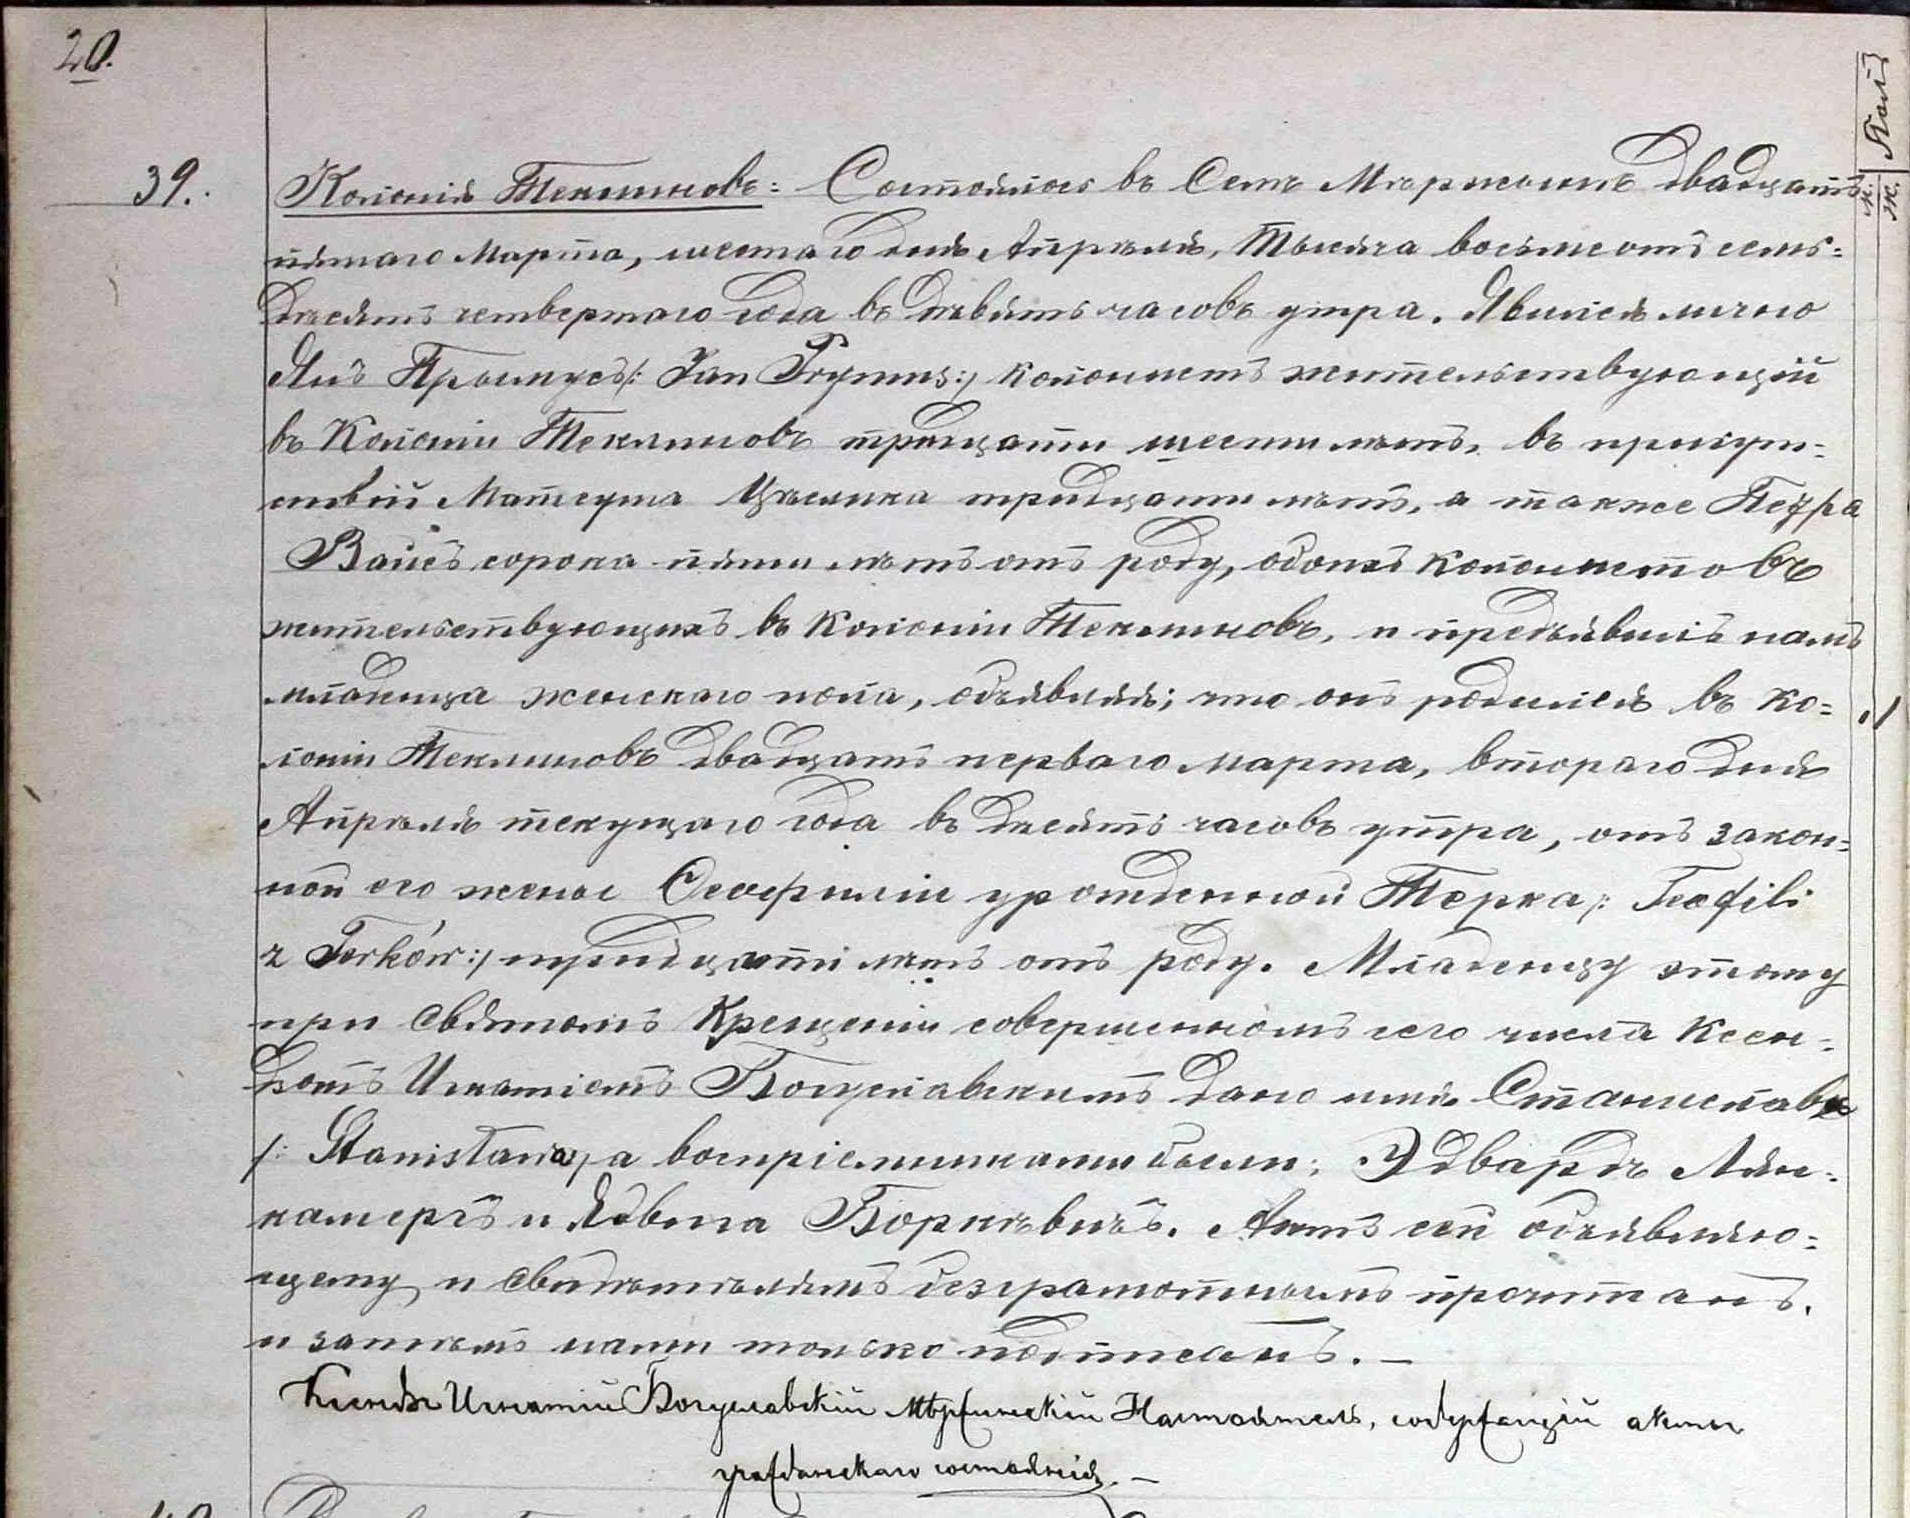 20.
Полъ
м. ж.
39. Колонія Теклиновъ: Состоялось въ Селѣ Мѣржычинѣ двадцать
пятаго Марта, шестаго дня Апрѣля, тысяча восемсотъ семь=
десятъ четвертаго года въ девять часовъ утра. Явился лично
Янъ Прымусъ /: Jan Prymus :/ колонистъ жительствующій
въ Колоніи Теклиновъ тридцати шести лѣтъ, въ присут=
ствіи Матеуша тридцати лѣтъ, а также Петра
Вайсъ сорока пяти лѣтъ отъ роду, обоихъ колонистовъ
жительствующихъ въ Колоніи Теклиновъ, и предъявилъ намъ
младенца женскаго пола, объявляя; что онъ родился въ Ко= „1
лоніи Теклиновъ двадцать перваго марта, втораго дня
Апрѣля текущаго года въ десять часовъ утра, отъ закон=
ной его жены урожденной Терка /: Teofili
z Terków :/ тридцати лѣтъ отъ роду. Младенцу этому
при Святомъ Крещеніи совершенномъ сего числа Ксен=
дзомъ Игнатіемъ Богуславскимъ дано имя Станислава
/: Stanisława :/ а воспріемниками были; Эдвардъ Лян=
камеръ и Ядвига Актъ сей объявляю=
щему и свидѣтелямъ безграмотнымъ прочитанъ,
и затѣмъ нами только подписанъ. —
Ксендзъ Игнатій Богуславскій Настоятель, содержащій акты
гражданскаго состоянія. —
40.